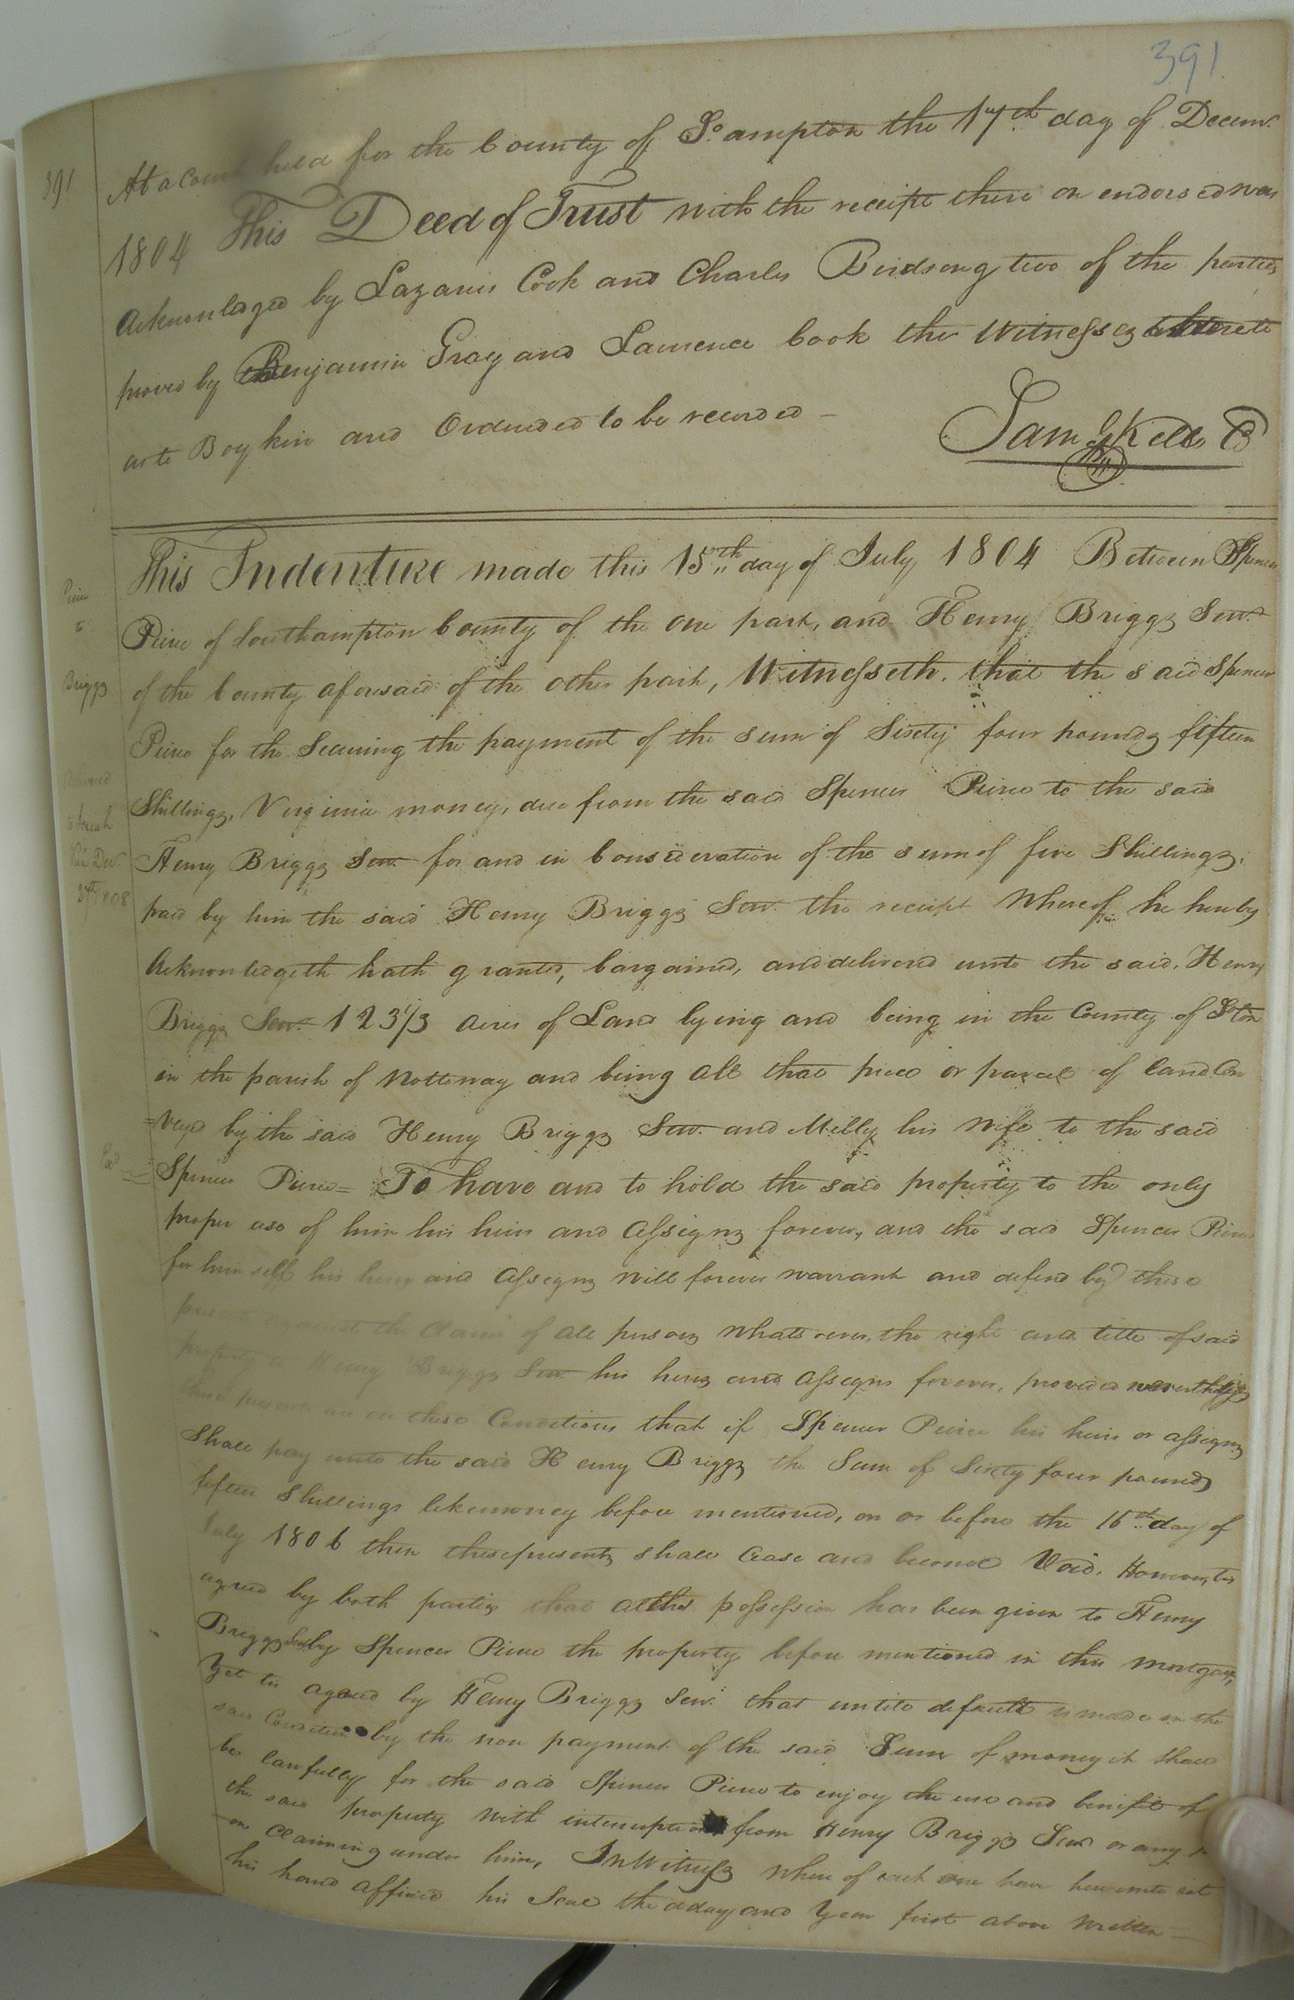 391.
391
At a Court held for the County of So. ampton the 17th day of Decemr.
1804 This Deed of Trust with the receipt there on endorsed was
Acknowledged by Lazarus Cook and Charles Birdsong two of the parties
proved by Benjamin Gray and Laurence Cook the Witnesses thereto
as to Boykin and Ordered to be recorded –
Sam Kello C
This Indenture made this 15th day of July 1804 Between Spencer
Peirce of Southampton County of the one part, and Henry Briggs Senr.
of the County aforesaid of the other part, Witnesseth. that the said Spencer
Peirce for the Securing the payment of the sum of Sixty four pounds fifteen
Shillings, Virginia money, due from the said Spencer Peirce to the said
Henry Briggs Senr. for and in Consideration of the sum of five Shillings,
paid by him the said Henry Briggs Senr. the receipt Whereof he hereby
Acknowledgeth hath granted, bargained, and delivered unto the said, Henry
Briggs Senr. 123 1/3 Acres of Land lying and being in the County of Ston
in the parish of Nottoway and being all that piece or parcel of land Con
=veyed by the said Henry Briggs Senr. and Milly his Wife to the said
Spencer Peirce = To have and to hold the said property to the only
proper use of him his heirs and Assigns forever, and the said Spencer Peirce
for him self his heirs and Assigns will forever warrant and defend by these
presents against the Claim of all persons whatsoever, the right and title of said
property to Henry Briggs Senr. his heirs and Assigns forever, provided nevertheless
these presents are on these Conditions that if Spencer Peirce his heirs or assigns
Shall pay unto the said Henry Briggs the Sum of Sixty four pounds
fifteen Shillings like money before mentioned, on or before the 15th day of
July 1806 then these presents shall Cease and become Void. However tis
agreed by both parties that altho possession has been given to Henry
Briggs Senr by Spencer Peirce the property before mentioned in this mortgage,
Yet tis agreed by Henry Briggs Senr. that until default is made in the
said Condition by the non payment of the said Sum of money it shall
be lawfully for the said Spencer Peirce to enjoy the use and benifit of
the said property with interruption from Henry Briggs Senr or any
on Claiming under him, In Witness where of each one have hereunto set
his hand affixed his Seal the day and Year first above written –
Peirce
to
Briggs
Delivered
Decr.
27th 1808
Exd